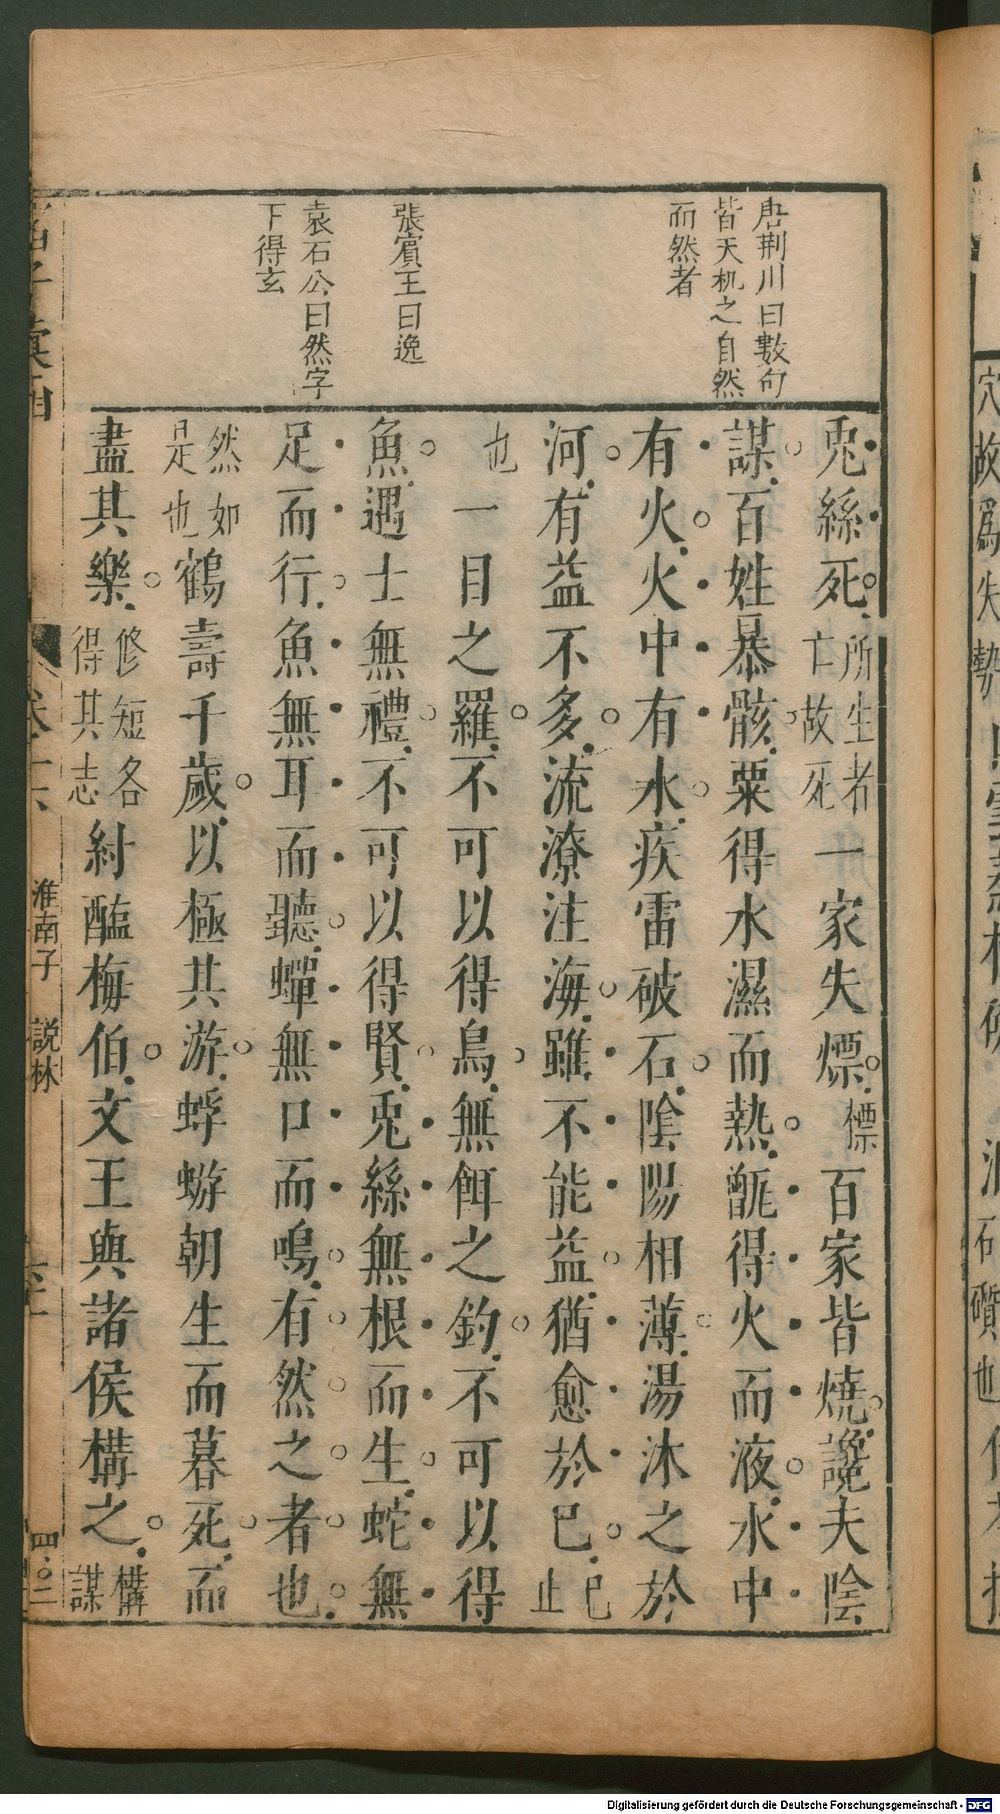 唐荆川曰數句
皆天机之自然
而然者
張賓王曰逸
袁石公曰然字
下得玄
兎絲死所生者亡故死一家失熛熛百家皆燒讒夫陰
謀百姓暴骸粟得水濕而熱甑得火而液水中
有火火中有水疾雷破石陰陽相薄湯沐之於
河有益不多流潦注海雖不能益猶愈於已已止
也一目之羅不可以得鳥無餌之釣不可以得
魚遇士無禮不可以得賢兎絲無根而生蛇無
足而行魚無耳而聽蟬無口而鳴有然之者也
然如是也鶴壽千歲以極其游蜉蝣朝生而暮死而
盡其樂修短各得其志紂醢梅伯文王與諸侯構之構謀
諸子彙函
淮南子 說林
Digitalisierung gefördert durch die Deutsche Forschungsgemeinschaft - DFG